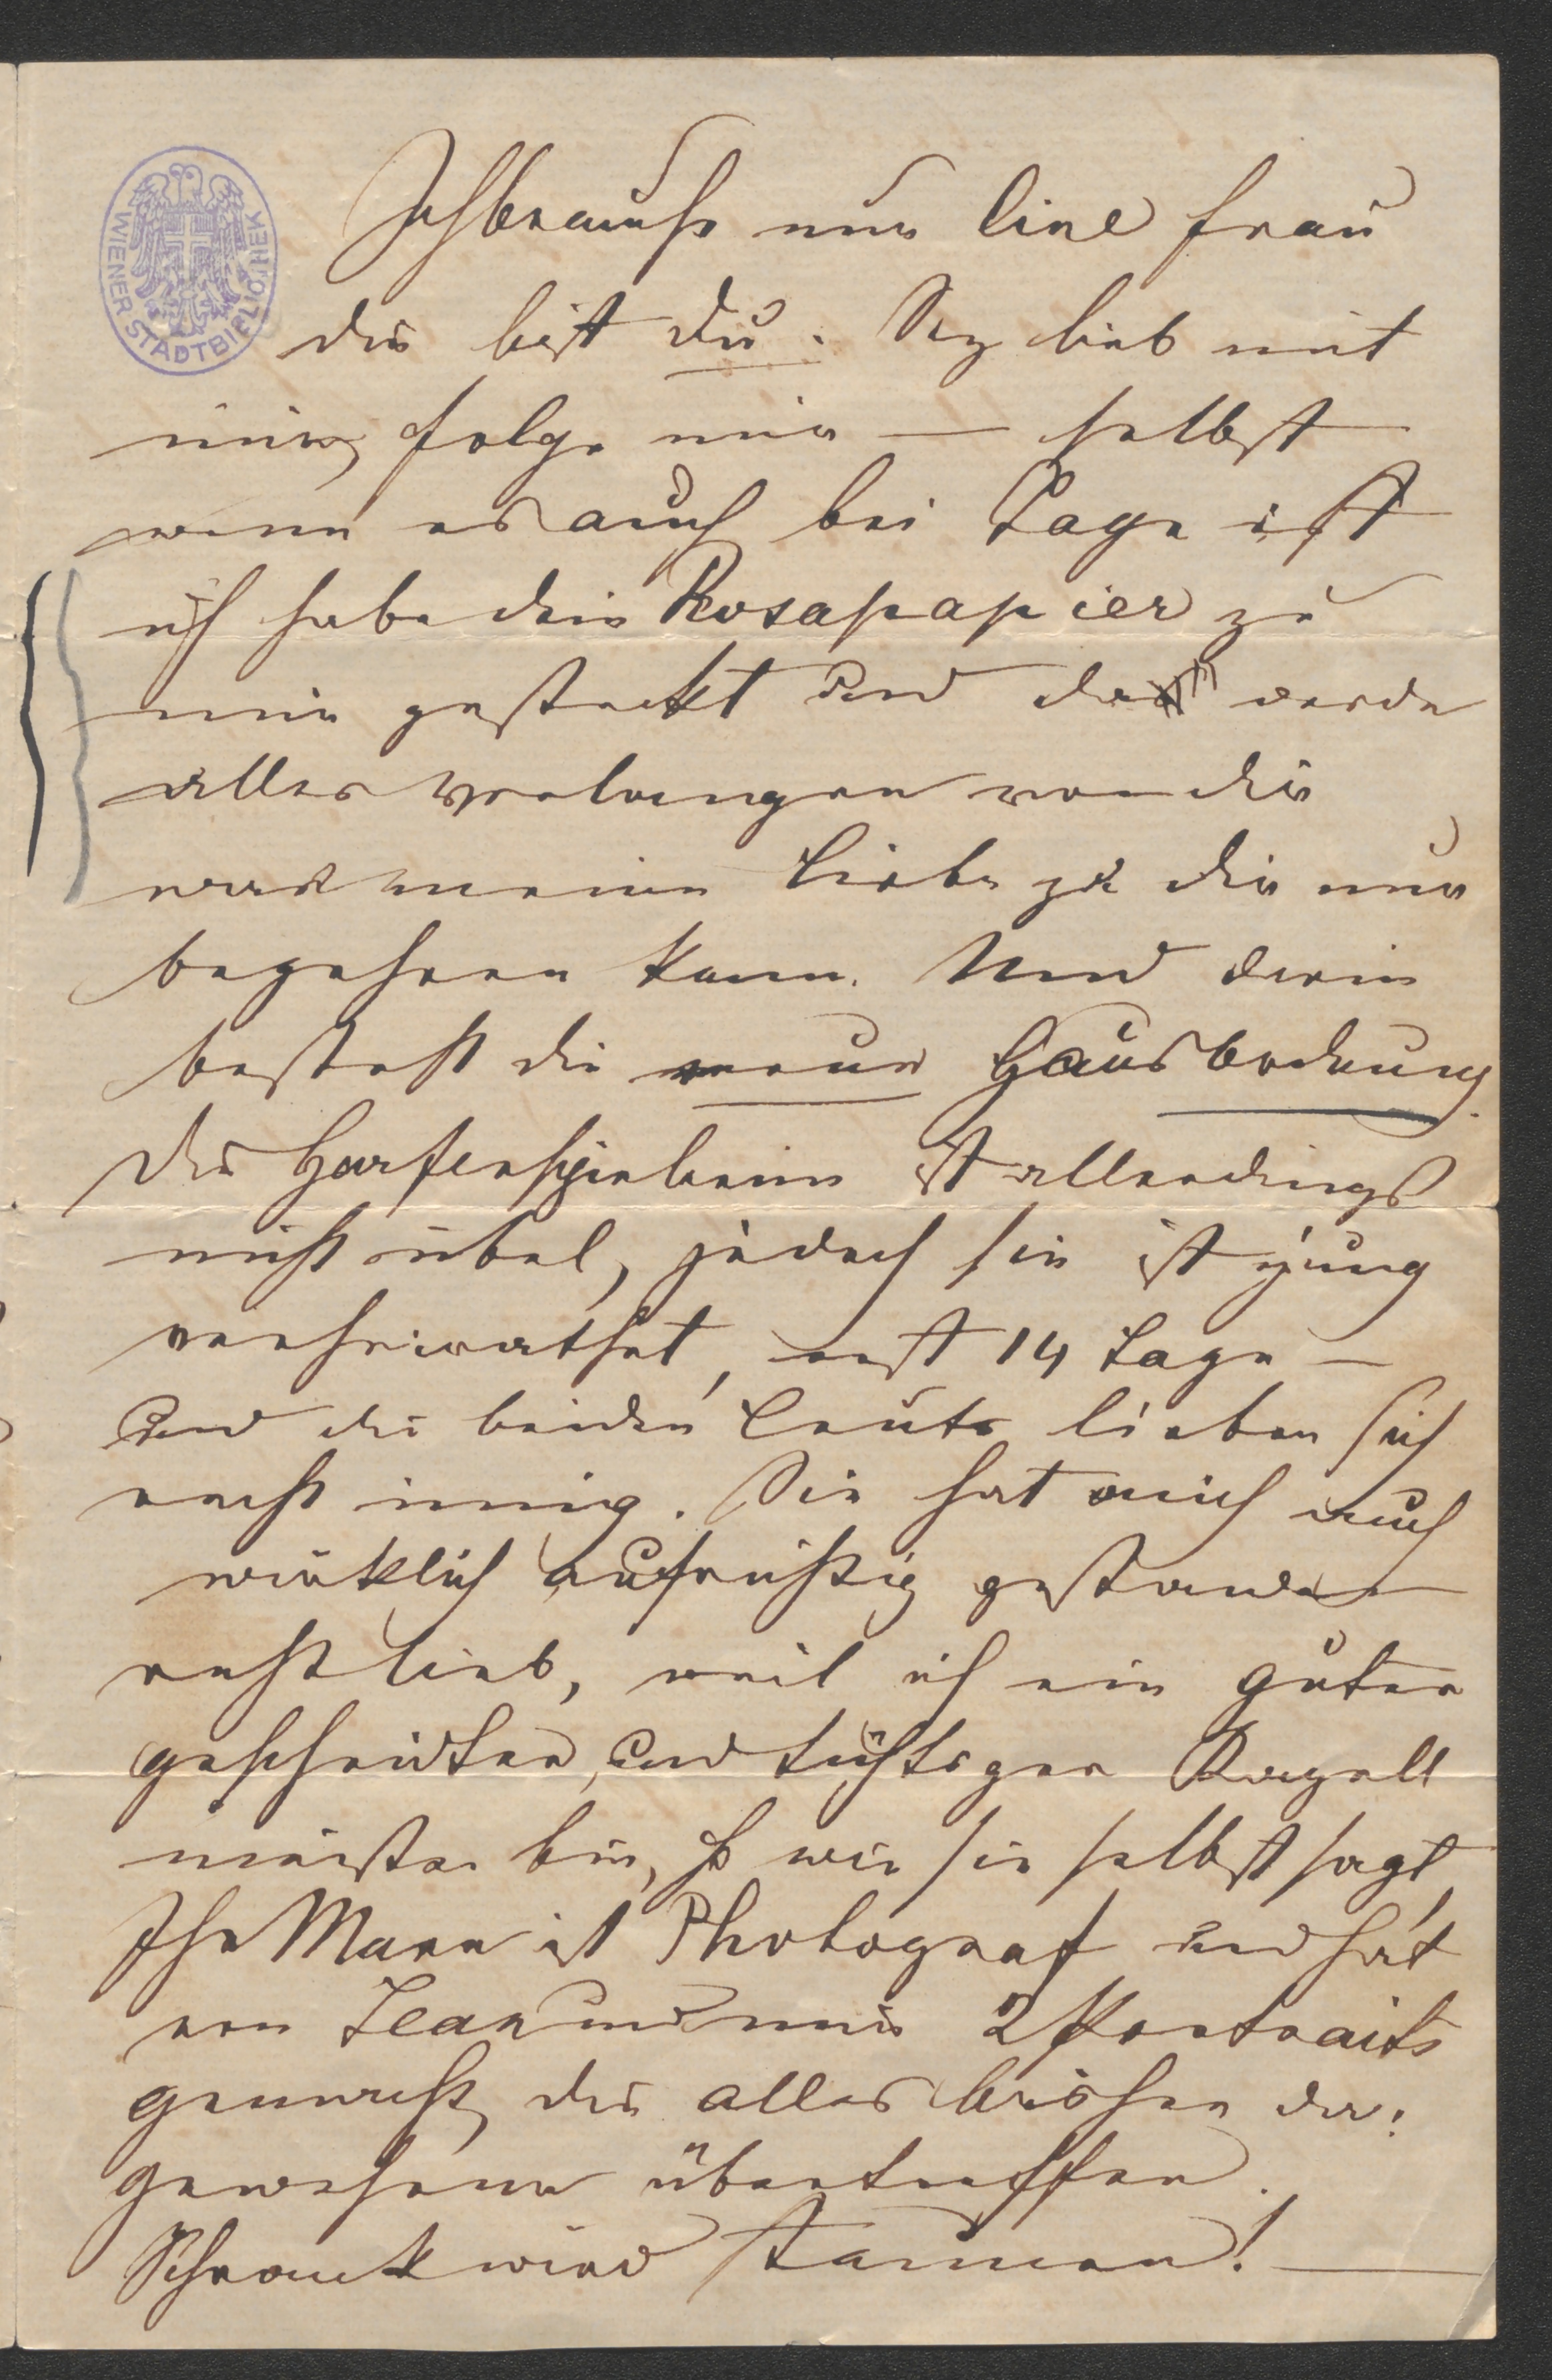 WIENER STADTBIBLIOTHEK
Ich brauche nur Eine Frau
die bist Du. Sey lieb mit
mir, folge mir — selbst
wenn es auch bei Tage ist
ich habe dein Rosapapier zu
mir gesteckt und da werde
alles verlangen von dir
was meine Liebe zu dir nur
begehren kann. Und darin
besteht die neue Hausordnung.
Die Harfenspielerin ist allerdings
nicht übel, jedoch sie ist jung
verheirathet, erst 14 Tage —
und die beiden Leute lieben sich
recht innig. Sie hat mich auch
wirklich aufrichtig gestanden
recht lieb, weil ich ein guter
gescheidter, und tüchtiger Kapell
meister bin, so wie sie selbst sagt
Ihr Mann ist Photograf und hat
von Jean und mir 2 Portraits
gemacht, die alles bisher da:
gewesene übertreffen.
Schrank wird staunen! —